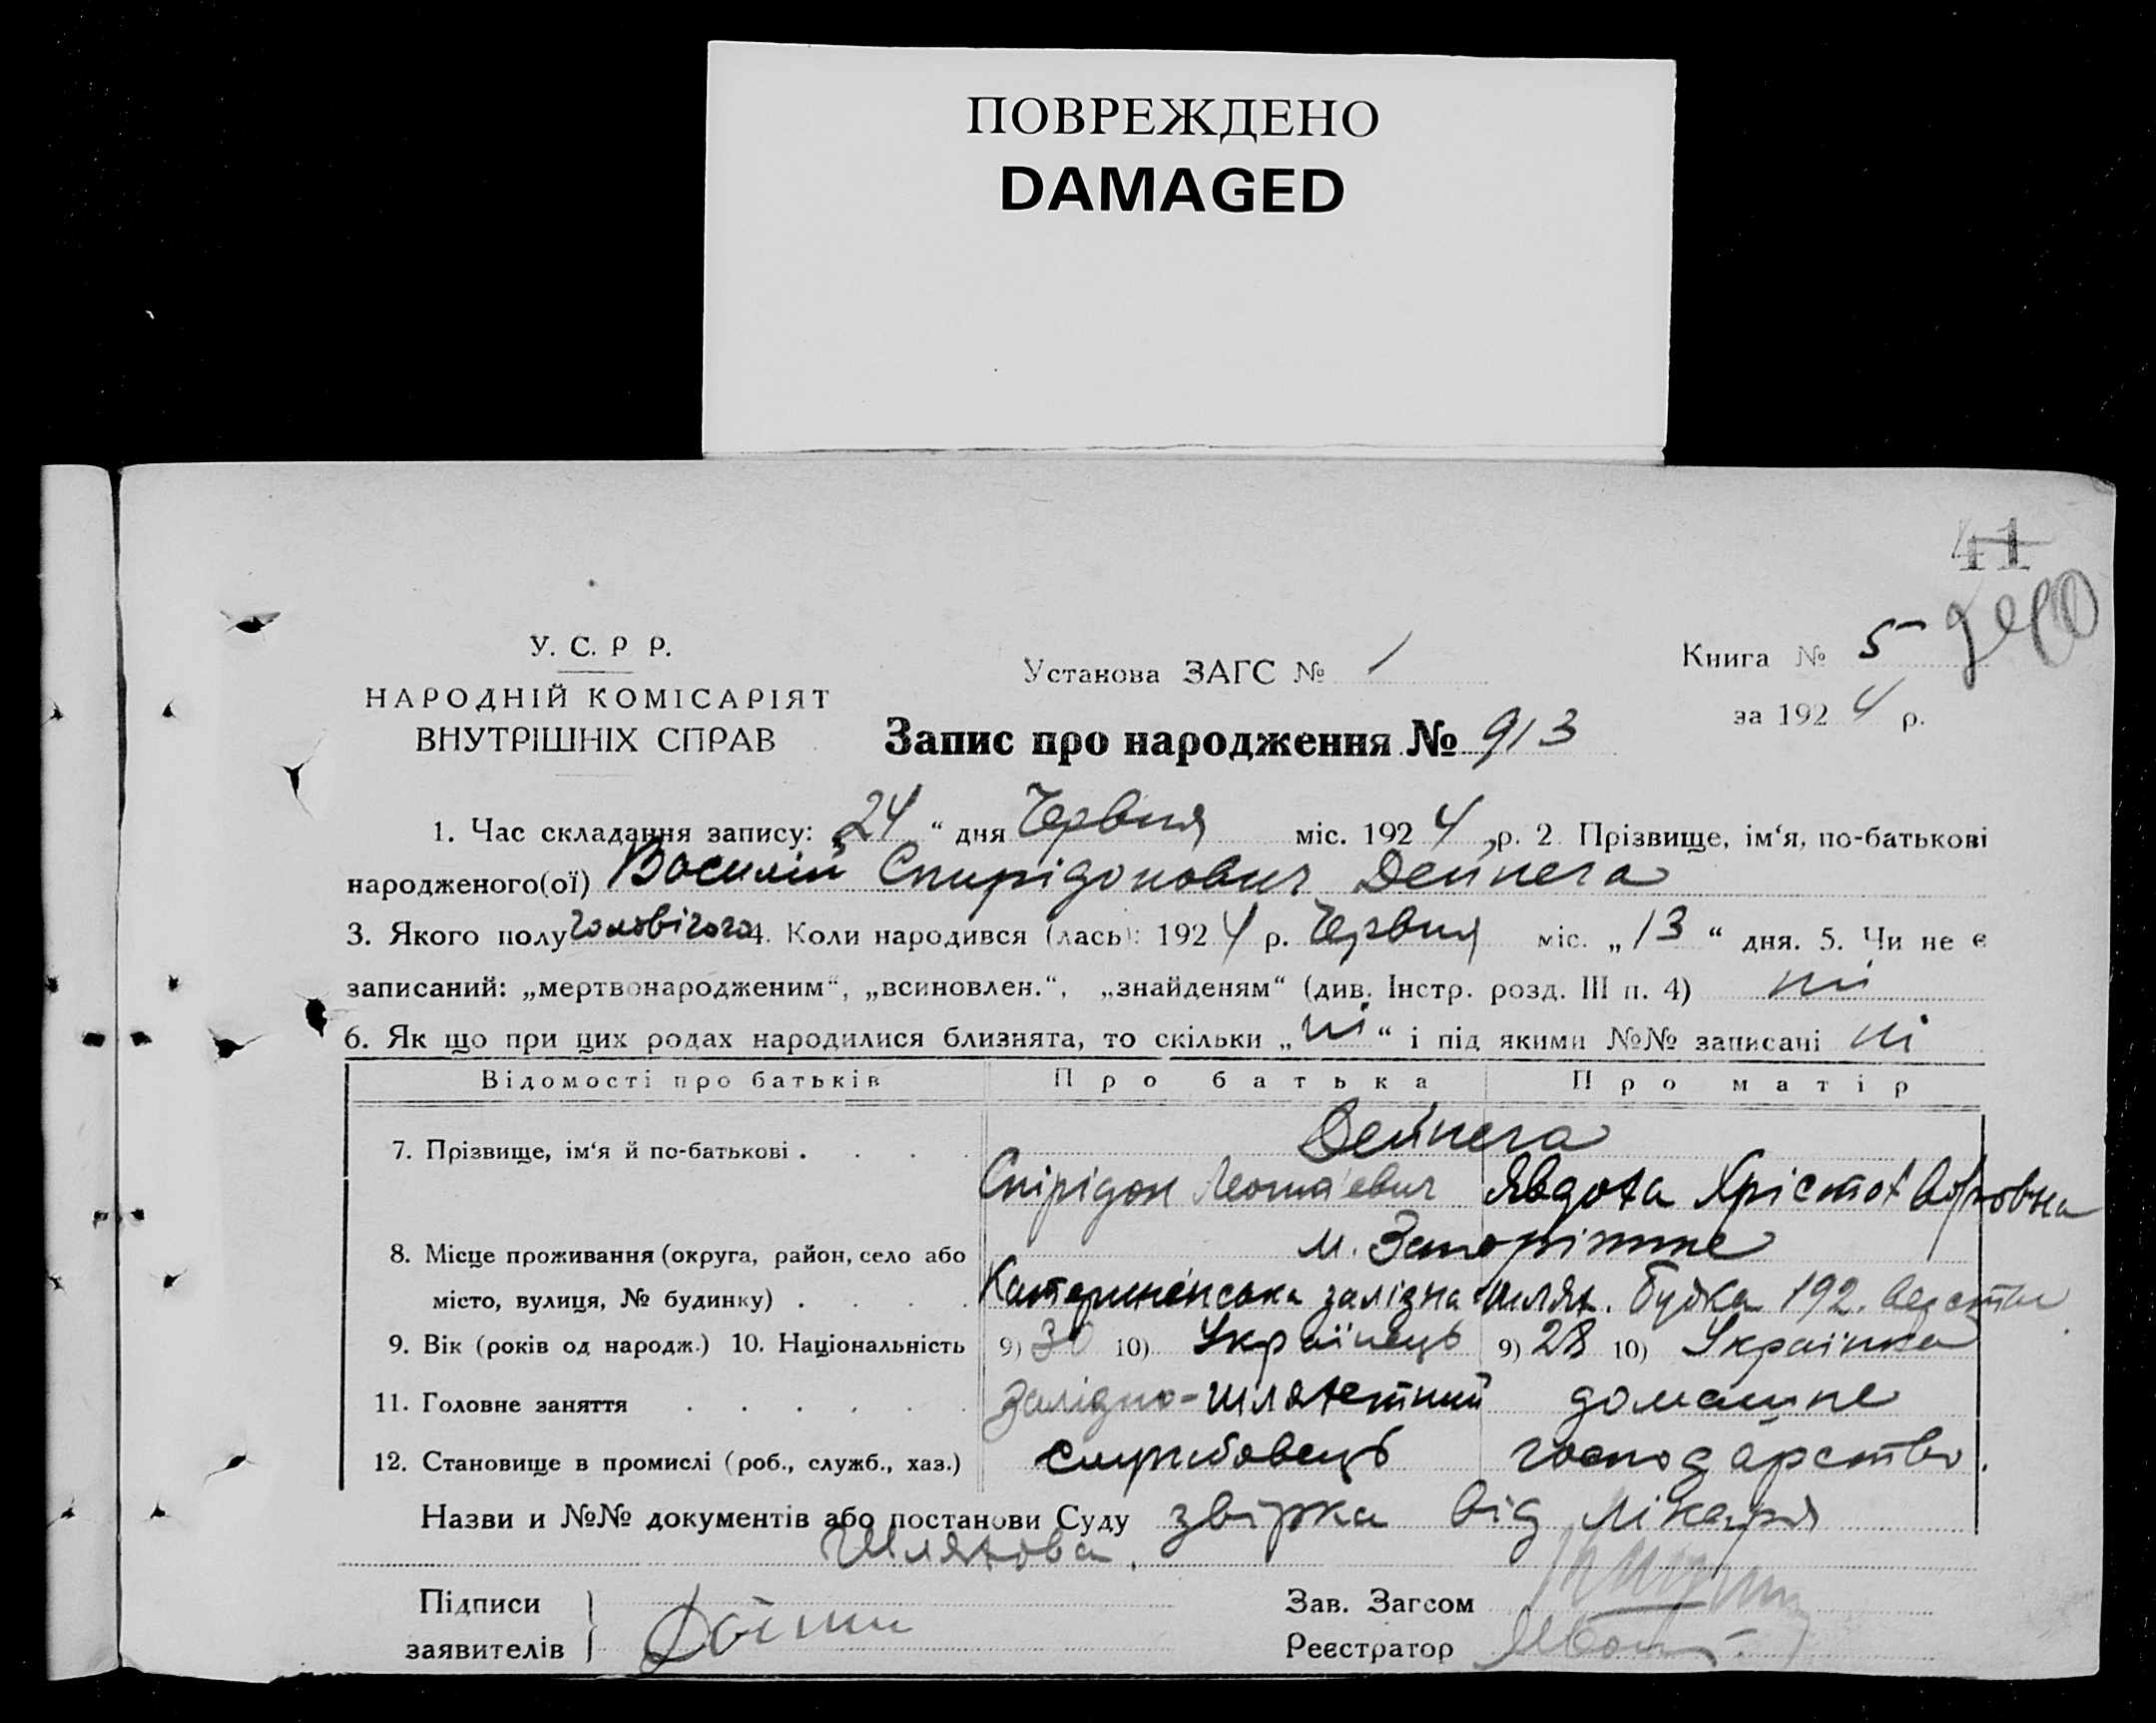 ПОВРЕЖДЕНО
DAMAGED
41
У. С. Р Р.
НАРОДНІЙ КОМІСАРІЯТ
ВНУТРІШНІХ СПРАВ
Установа ЗАГС № 1
Книга № 5
за 1924 р.
Запис про народження № 913
1. Час складання запису: „24“ дня Червня міс. 1924 р. 2. Прізвище, ім‘я, по-батькові
народженого(ої) Василій Спирідонович Дейнега
3. Якого полу чоловічого 4. Коли народився (лась): 1924 р. Червня міс. „13“ дня. 5. Чи не є
записаний: „мертвонародженим“, „всиновлен.“, „знайденям“ (див. Інстр. розд. III п. 4) ні
6. Як що при цих родах народилися близнята, то скільки „ні“ і під якими №№ записані ні
Відомості про батьків Про батька Про матір
Дейнега
7. Прізвище, ім‘я й по-батькові . . . . Спірідон Явдоха
м. Запоріжже
8. Місце проживання (округа, район, село або
місто, вулиця, № будинку) . . . . Катерининська залізна шлях. будка 192. верстви
9. Вік (років од народж.) 10. Національність 9) 30 10) Українець 9) 28 10) Українка
11. Головне заняття . . . . . . залізно-шляхетний домашне
12. Становище в промислі (роб., служб., хаз.) службовець господарство.
Назви и №№ документів або постанови Суду звірка від лікаря
Шляхова.
Підписи
заявителів
Зав. Загсом
Реєстратор